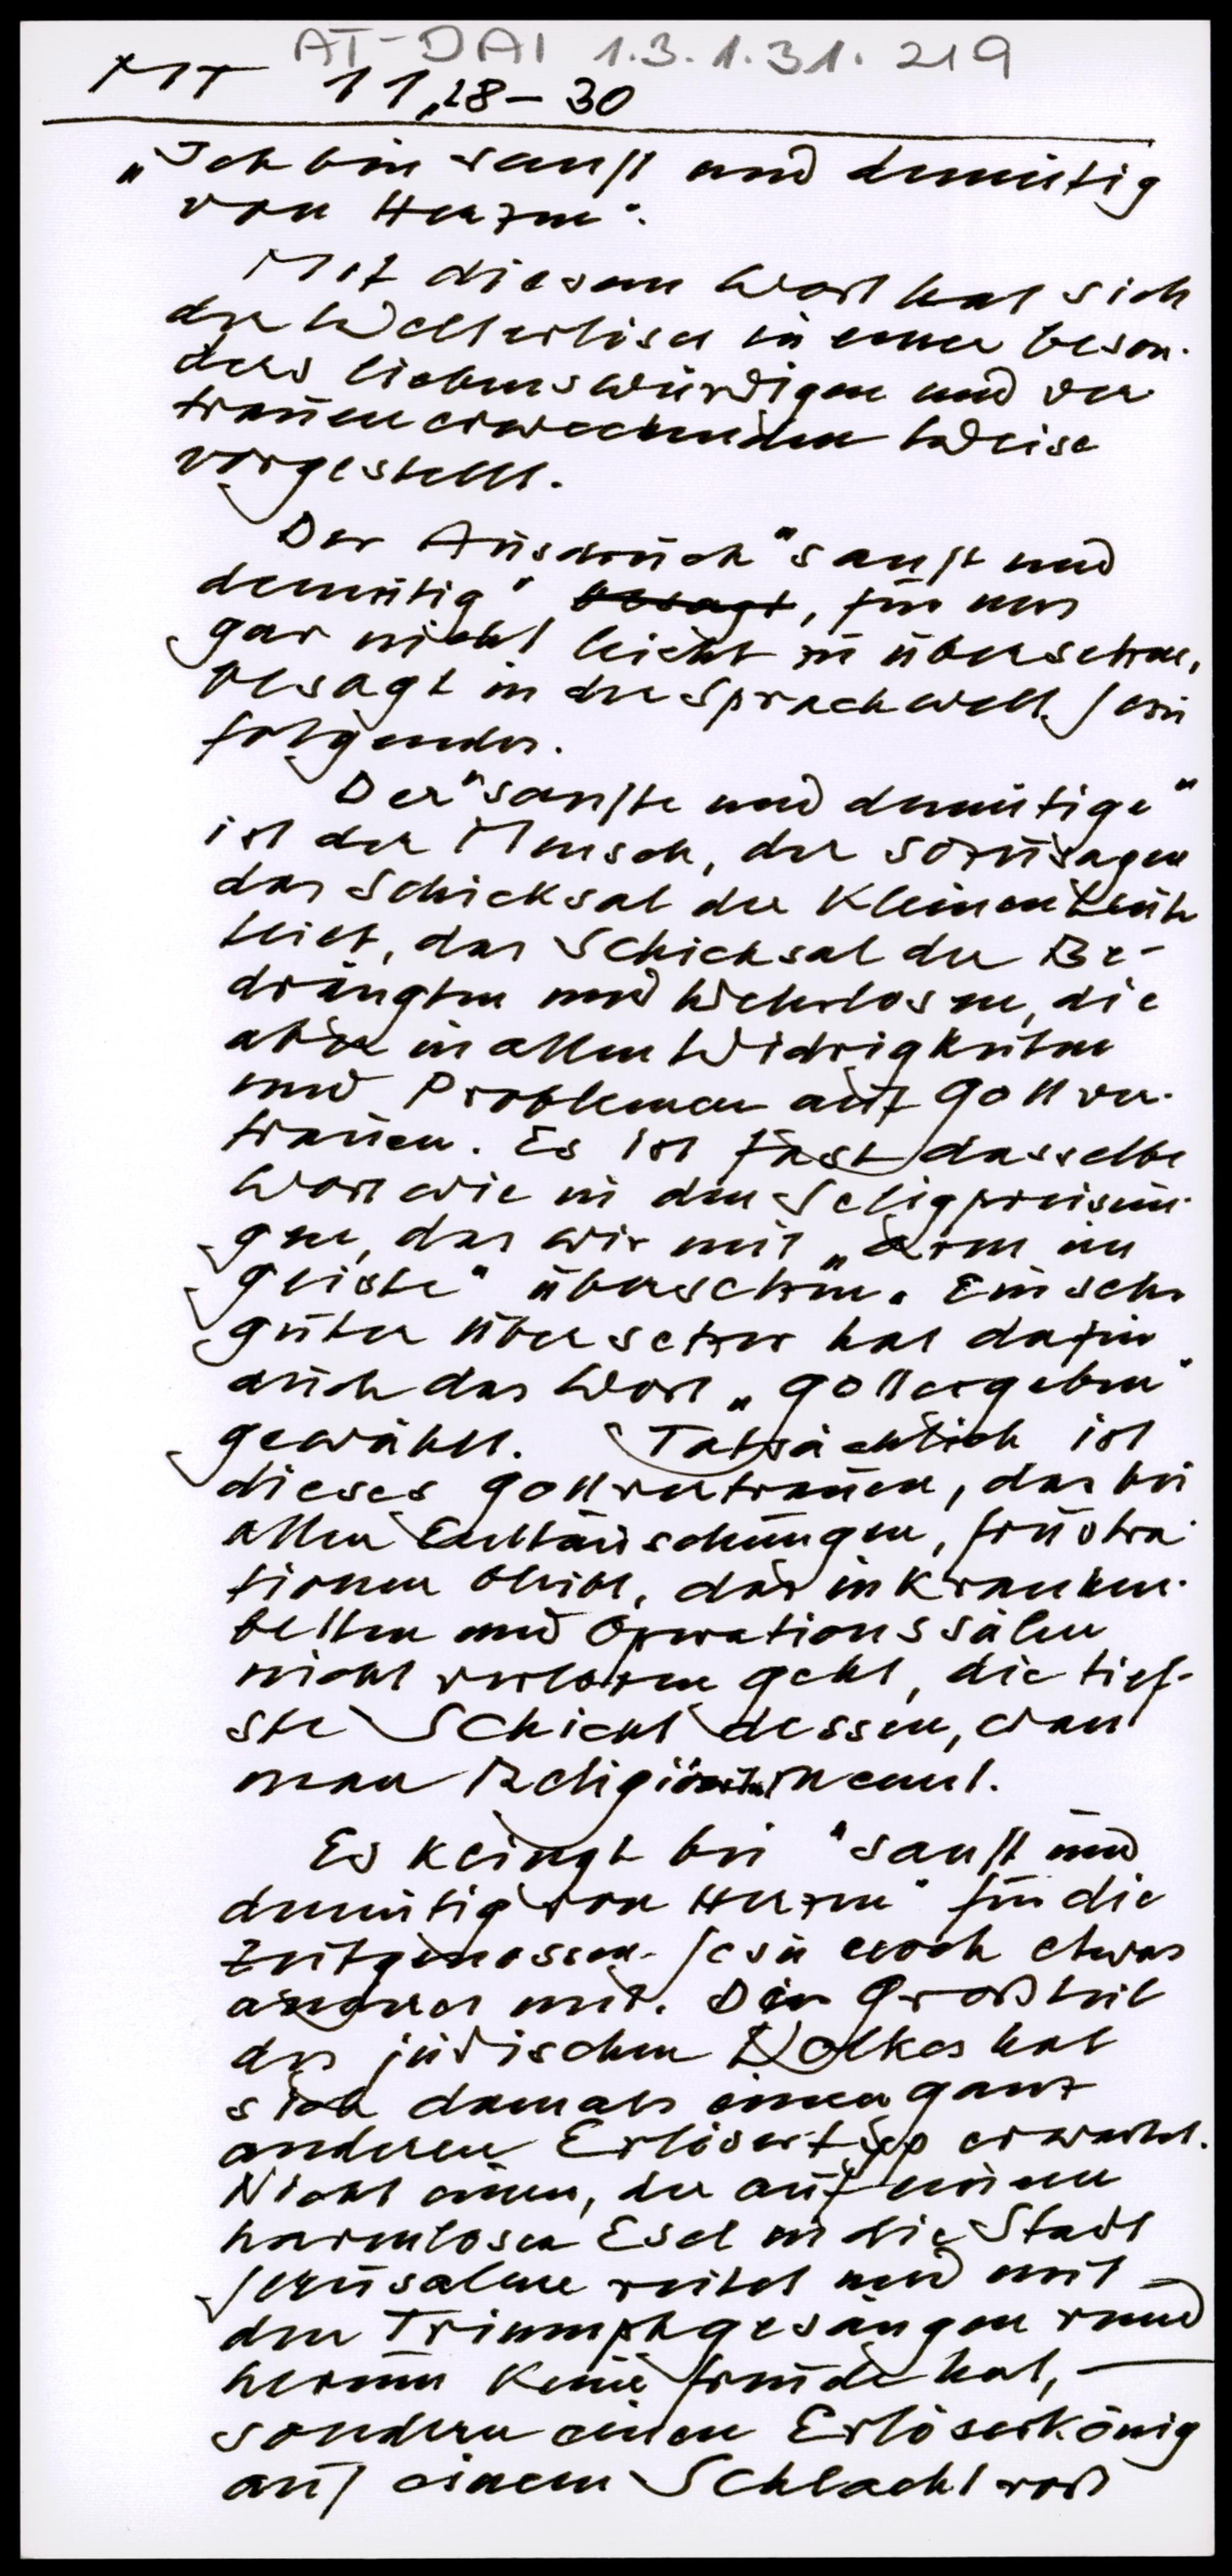 AT-DAI 1.3.1.31.219
MT 11,28-30
„Ich bin sanft und demütig
von Herzen".
Mit diesem Wort hat sich
der Welterlöser in einer beson-
ders liebenswürdigen und ver-
trauenerweckenden Weise
vorgestellt.
Der Ausdruck "sanft und
demütig" besagt, für uns
gar nicht leicht zu übersetzen,
besagt in der Sprachwelt Jesu
folgendes.
Der "sanfte und demütige"
ist der Mensch, der sozusagen
das Schicksal der kleinen Leute
teilt, das Schicksal der Be-
drängten und Wehrlosen, die
aber in allen Widrigkeiten
und Problemen auf Gott ver-
trauen. Es ist fast dasselbe
Wort wie in den Seligpreisun-
gen, das wir mit „arm im
Geiste" übersetzen. Ein sehr
guter Übersetzer hat dafür
auch das Wort „gottergeben"
gewählt. Tatsächlich ist
dieses Gottvertrauen, das bei
allen Enttäuschungen, Frustra-
tionen bleibt, das in Kranken-
betten und Operationssälen
nicht verloren geht, die tief-
ste Schicht dessen, was
man nennt.
Es klingt bei "sanft und
demütig von Herzen" für die
Zeitgenossen Jesu noch etwas
anderes mit. Der Großteil
des jüdischen Volkes hat
sich damals einen ganz
anderen Erlösertyp erwartet.
Nicht einen, der auf einem
harmlosen Esel in die Stadt
Jerusalem reitet und mit
den Triumphgesängen rund
herum keine Freude hat,
sondern einen Erlöserkönig
auf einem Schlachtroß